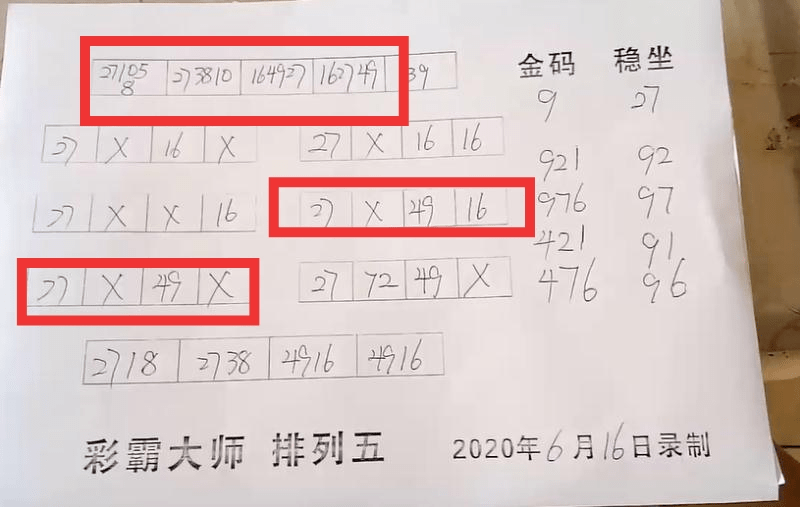 271058 273810 164927 162749 39
金码 稳坐
9 27
27 X 16 X
27 X 16 16
921 92
27 X X 16
27 X 49 16
976 97
421 91
27 X 49 X
27 72 49 X
476 96
2718 2738 4916 4916
彩霸大师 排列五 2020年6月16日录制